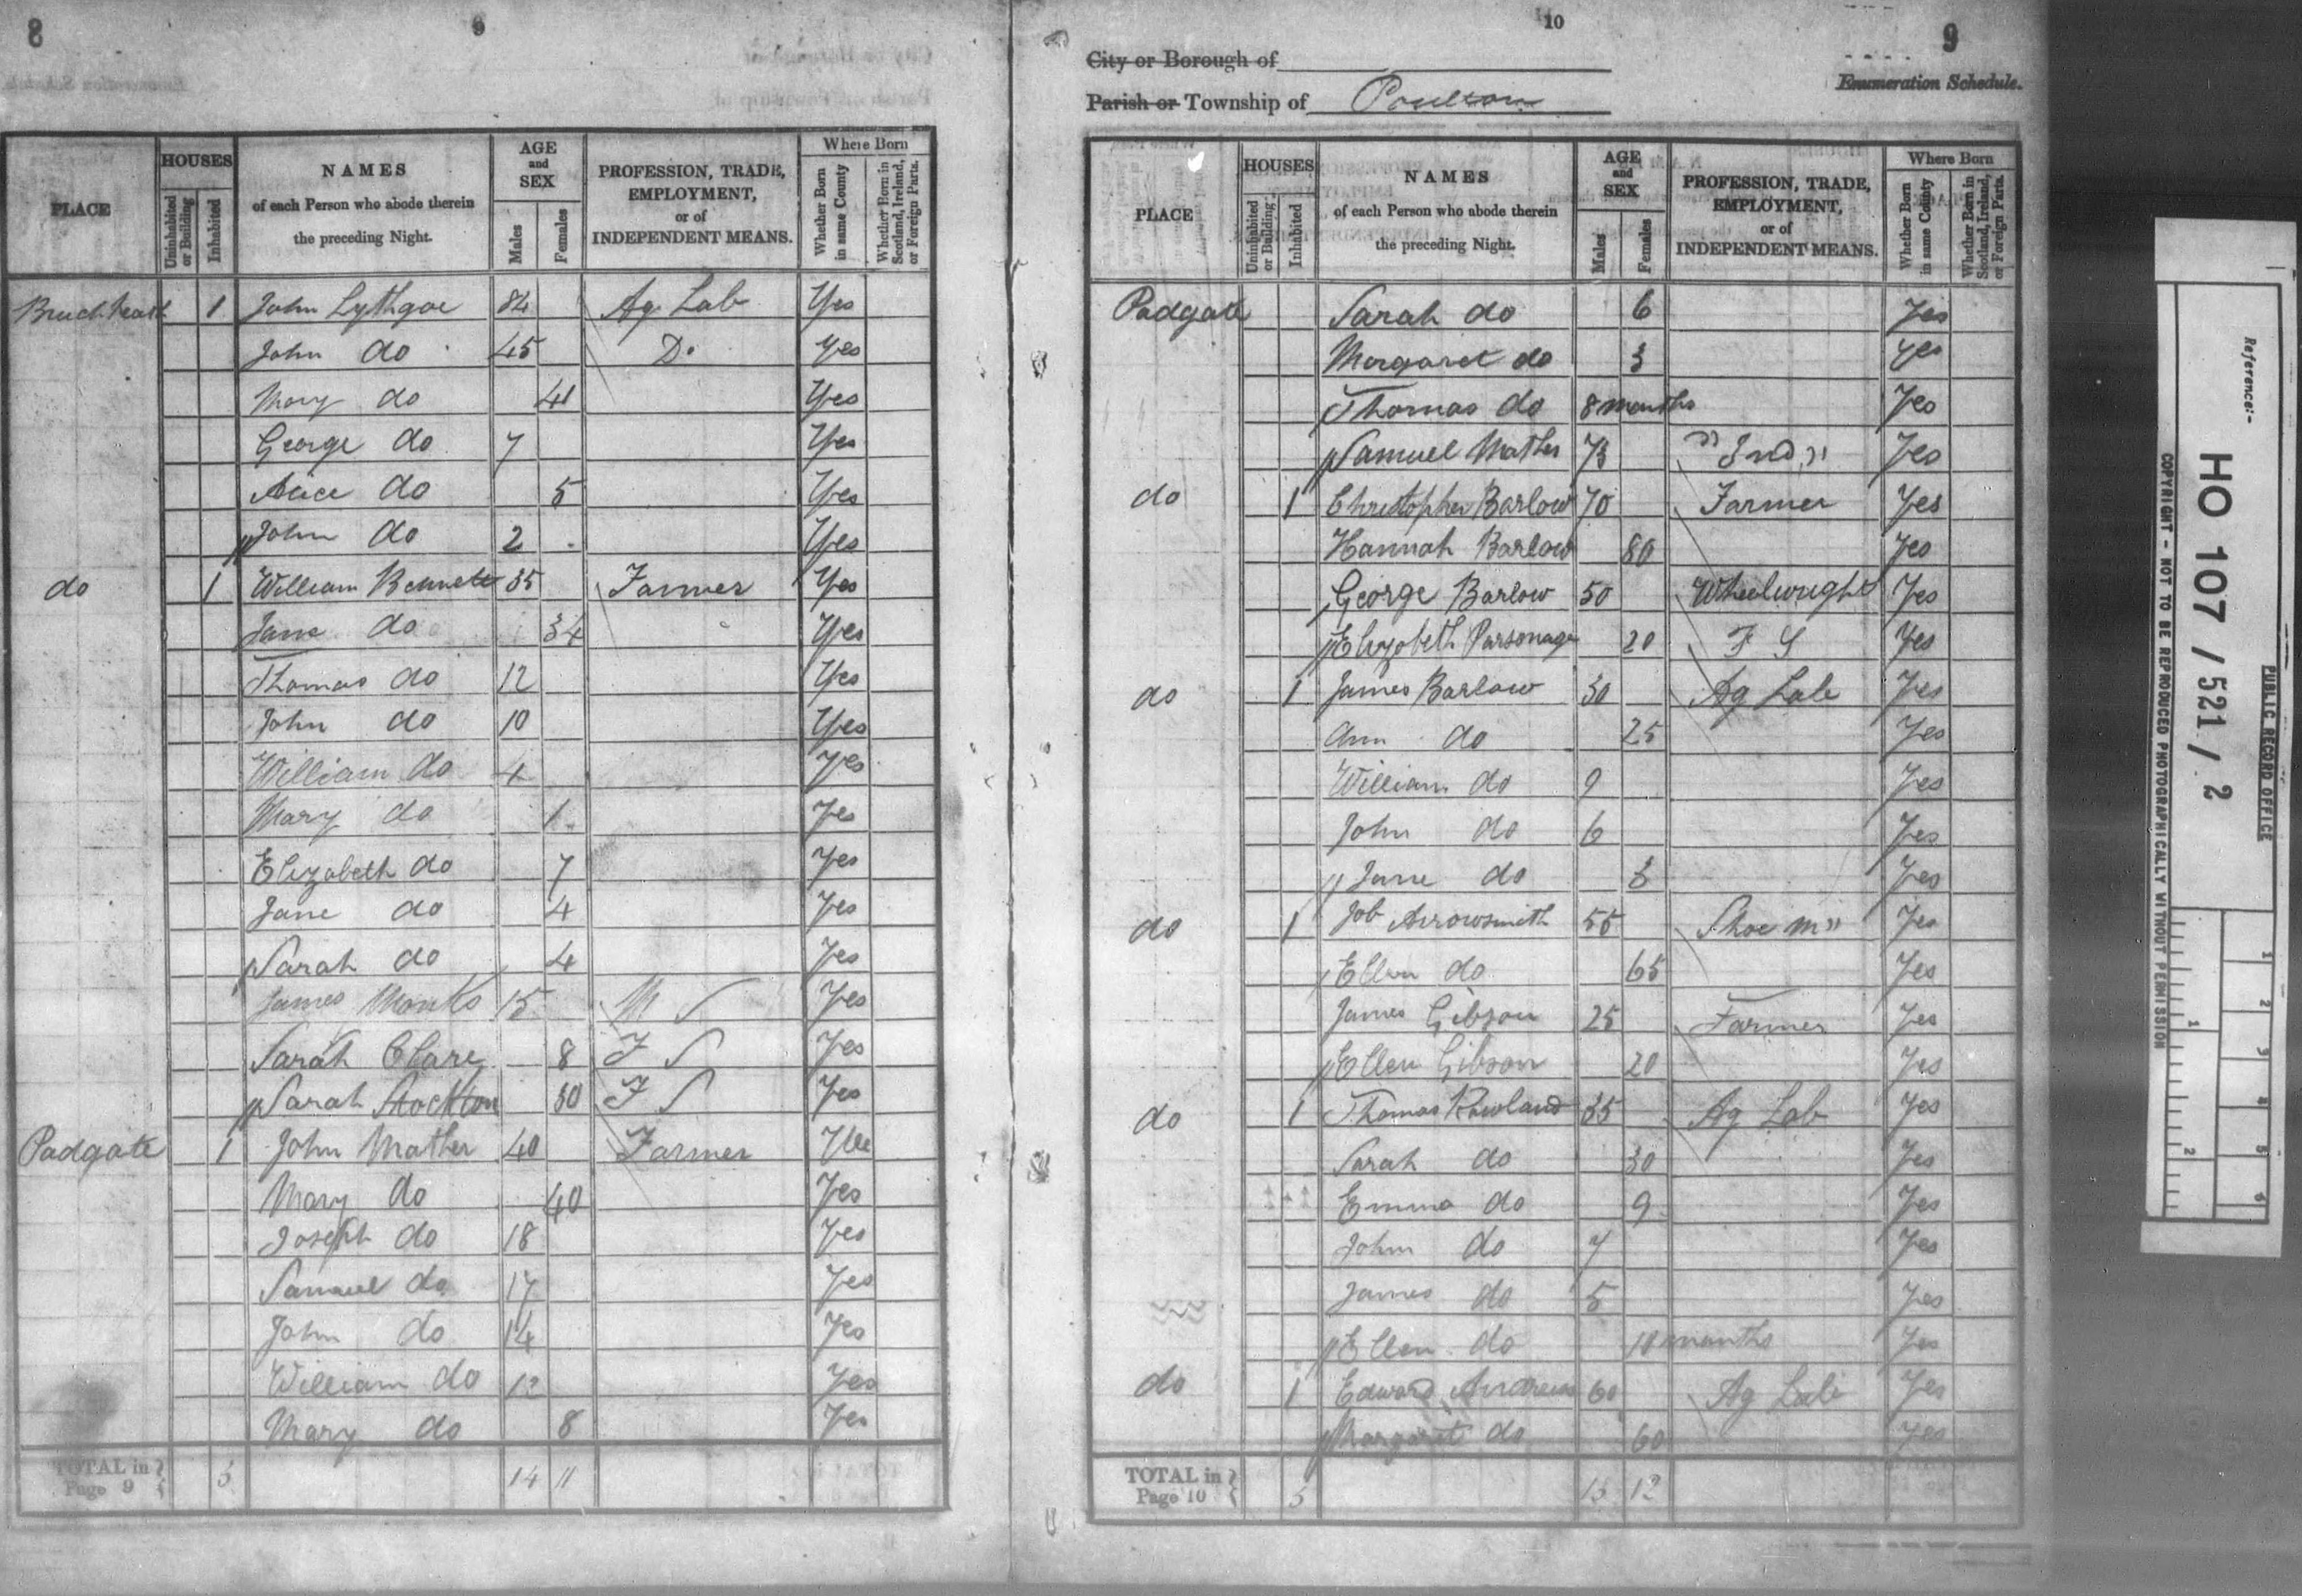 8
9
HOUSES
AGE and SEX
Where Born
PLACE
Uninhabited or Building
Inhabited
NAMES of each Person who abode therein the preceding Night.
Males
Females
PROFESSION, TRADE, EMPLOYMENT, or of INDEPENDENT MEANS.
Whether Born in same County
Whether Born in Scotland, Ireland, or Foreign Parts.
1 John Lythgoe 84 Ag Lab Yes
John do 45 Do Yes
Mary do 41 Yes
George do 7 Yes
Alice do 5 Yes
John do 2 Yes
do 1 William Bennett 35 Farmer Yes
Jane do 34 Yes
Thomas do 12 Yes
John do 10 Yes
William do 4 Yes
Mary do 1 Yes
Elizabeth do 7 Yes
Jane do 4 Yes
Sarah do 4 Yes
James Monks 15 M S Yes
Sarah Clare 8 F S Yes
Sarah Stockton 30 F S Yes
Padgate 1 John Mather 40 Farmer Yes
Mary do 40 Yes
Joseph do 18 Yes
Samuel do 17 Yes
John do 14 Yes
William do 12 Yes
Mary do 8 Yes
TOTAL in Page 9 3 14 11
10
9
City or Borough of
Enumeration Schedule.
Parish or Township of Poulton
HOUSES
AGE and SEX
Where Born
PLACE
Uninhabited or Building
Inhabited
NAMES of each Person who abode therein the preceding Night.
Males
Females
PROFESSION, TRADE, EMPLOYMENT, or of INDEPENDENT MEANS.
Whether Born in same County
Whether Born in Scotland, Ireland, or Foreign Parts.
Padgate Sarah do 6 Yes
Margaret do 3 Yes
Thomas do 8 months Yes
Samuel Mather 73 "Ind" Yes
do 1 Christopher Barlow 70 Farmer Yes
Hannah Barlow 80 Yes
George Barlow 50 Wheelwright Yes
Elizabeth Parsonage 20 F S Yes
do 1 James Barlow 30 Ag Lab Yes
Ann do 25 Yes
William do 9 Yes
John do 6 Yes
Jane do 3 Yes
do 1 Job Arrowsmith 55 Shoe M" Yes
Ellen do 65 Yes
James Gibson 25 Farmer Yes
Ellen Gibson 20 Yes
do 1 Thomas Rowland 35 Ag Lab Yes
Sarah do 30 Yes
Emma do 9 Yes
John do 7 Yes
James do 5 Yes
Ellen do 10 months Yes
do 1 Edward Andrews 60 Ag Lab Yes
Margaret do 60 Yes
TOTAL in Page 10 5 13 12
PUBLIC RECORD OFFICE
Reference:-
HO 107 / 521 / 2
COPYRIGHT - NOT TO BE REPRODUCED PHOTOGRAPHICALLY WITHOUT PERMISSION
1 2 3 4 5 6
1 2